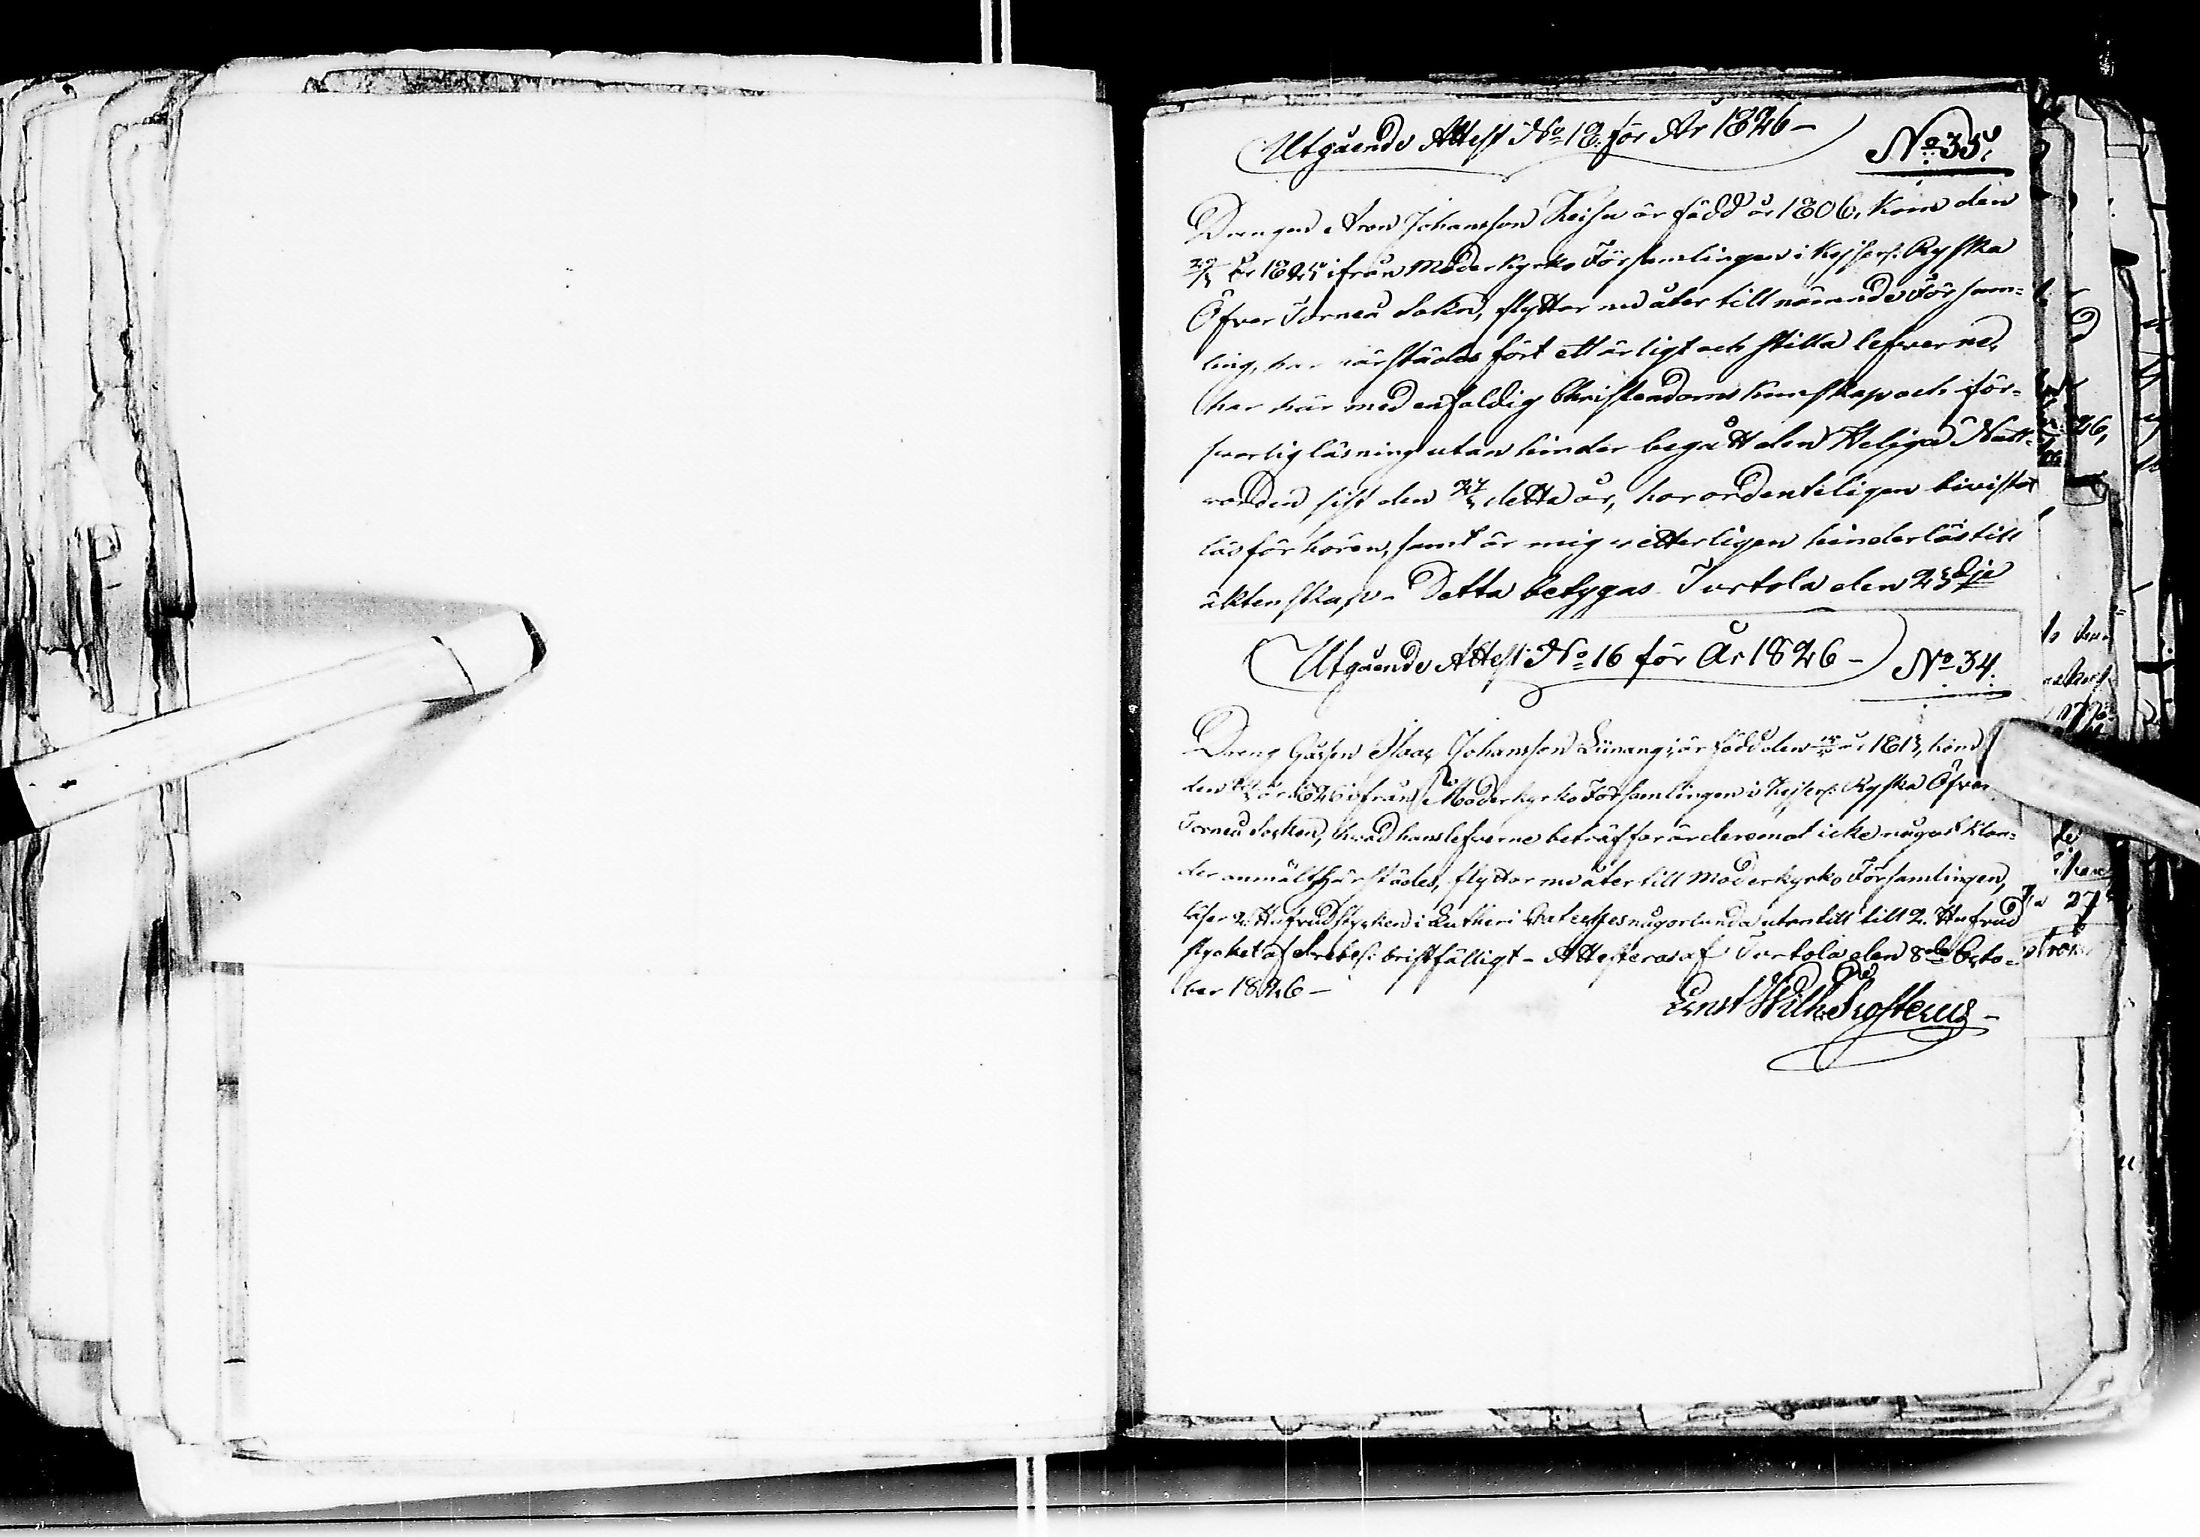 Utgående Attest No 18. för År 1826 –
No 35.
Drengen Aron Johansson Keisu är född år 1806, kom den
år 1825 ifrån Moderkyrko Församlingen i Kejserl: Rysska
Öfver Torneå Sokn, flyttar nu åter till nämnde Försam=
ling, har härstädes fört ett ärligt och stilla lefverne,
har här med enfaldig Christendoms kunskap och för=
svarlig läsning utan hinder begått den Heliga Natt=
varden sist den detta år, har ordenteligen bivistat
läsförhören, samt är mig vetterligen hinderlös till
äktenskap. – Detta betygas. Turtola den 23dje
Utgående Attest No 16 för År 1826 –
No 34.
Dreng Gåssen Isaac Johansson är född den år 1813, kom
den år 1826 ifrån Moderkyrko Församlingen i Kejserl: Rysska Öfver
Torneå Socken, hvad hans lefverne beträffar är deremot icke något klan=
der anmält härstädes, flyttar nu åter till Moderkyrko Församlingen,
läser 2. Hufvudstycken i Lutheri Cateches någorlunda utantill till 2. Hufvud
stycket af Svebel: bristfälligt – Attesteras af Turtola den 8de Octo=
ber 1826 –
Ernst Wilh: